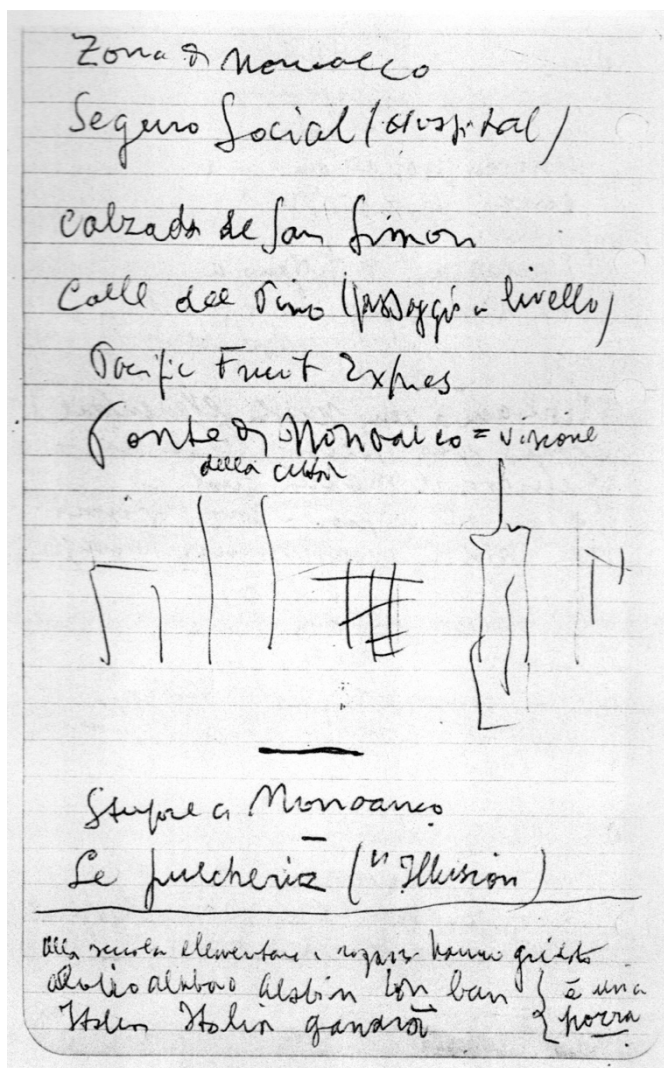 Zona di Nonoalco
Seguro Social (Hospital)
Calzada de San Simon
Calle del Pino (passaggio a livello)
Pacific Fruit Expres
Ponte di Nonoalco = visione
della città
Sempre a Nonoalco
Le pulcheria ("Illusion)
alla scuola elementare i ragazzi hanno gridato
bin bon ban { è una
Italia Italia ganarà { porra